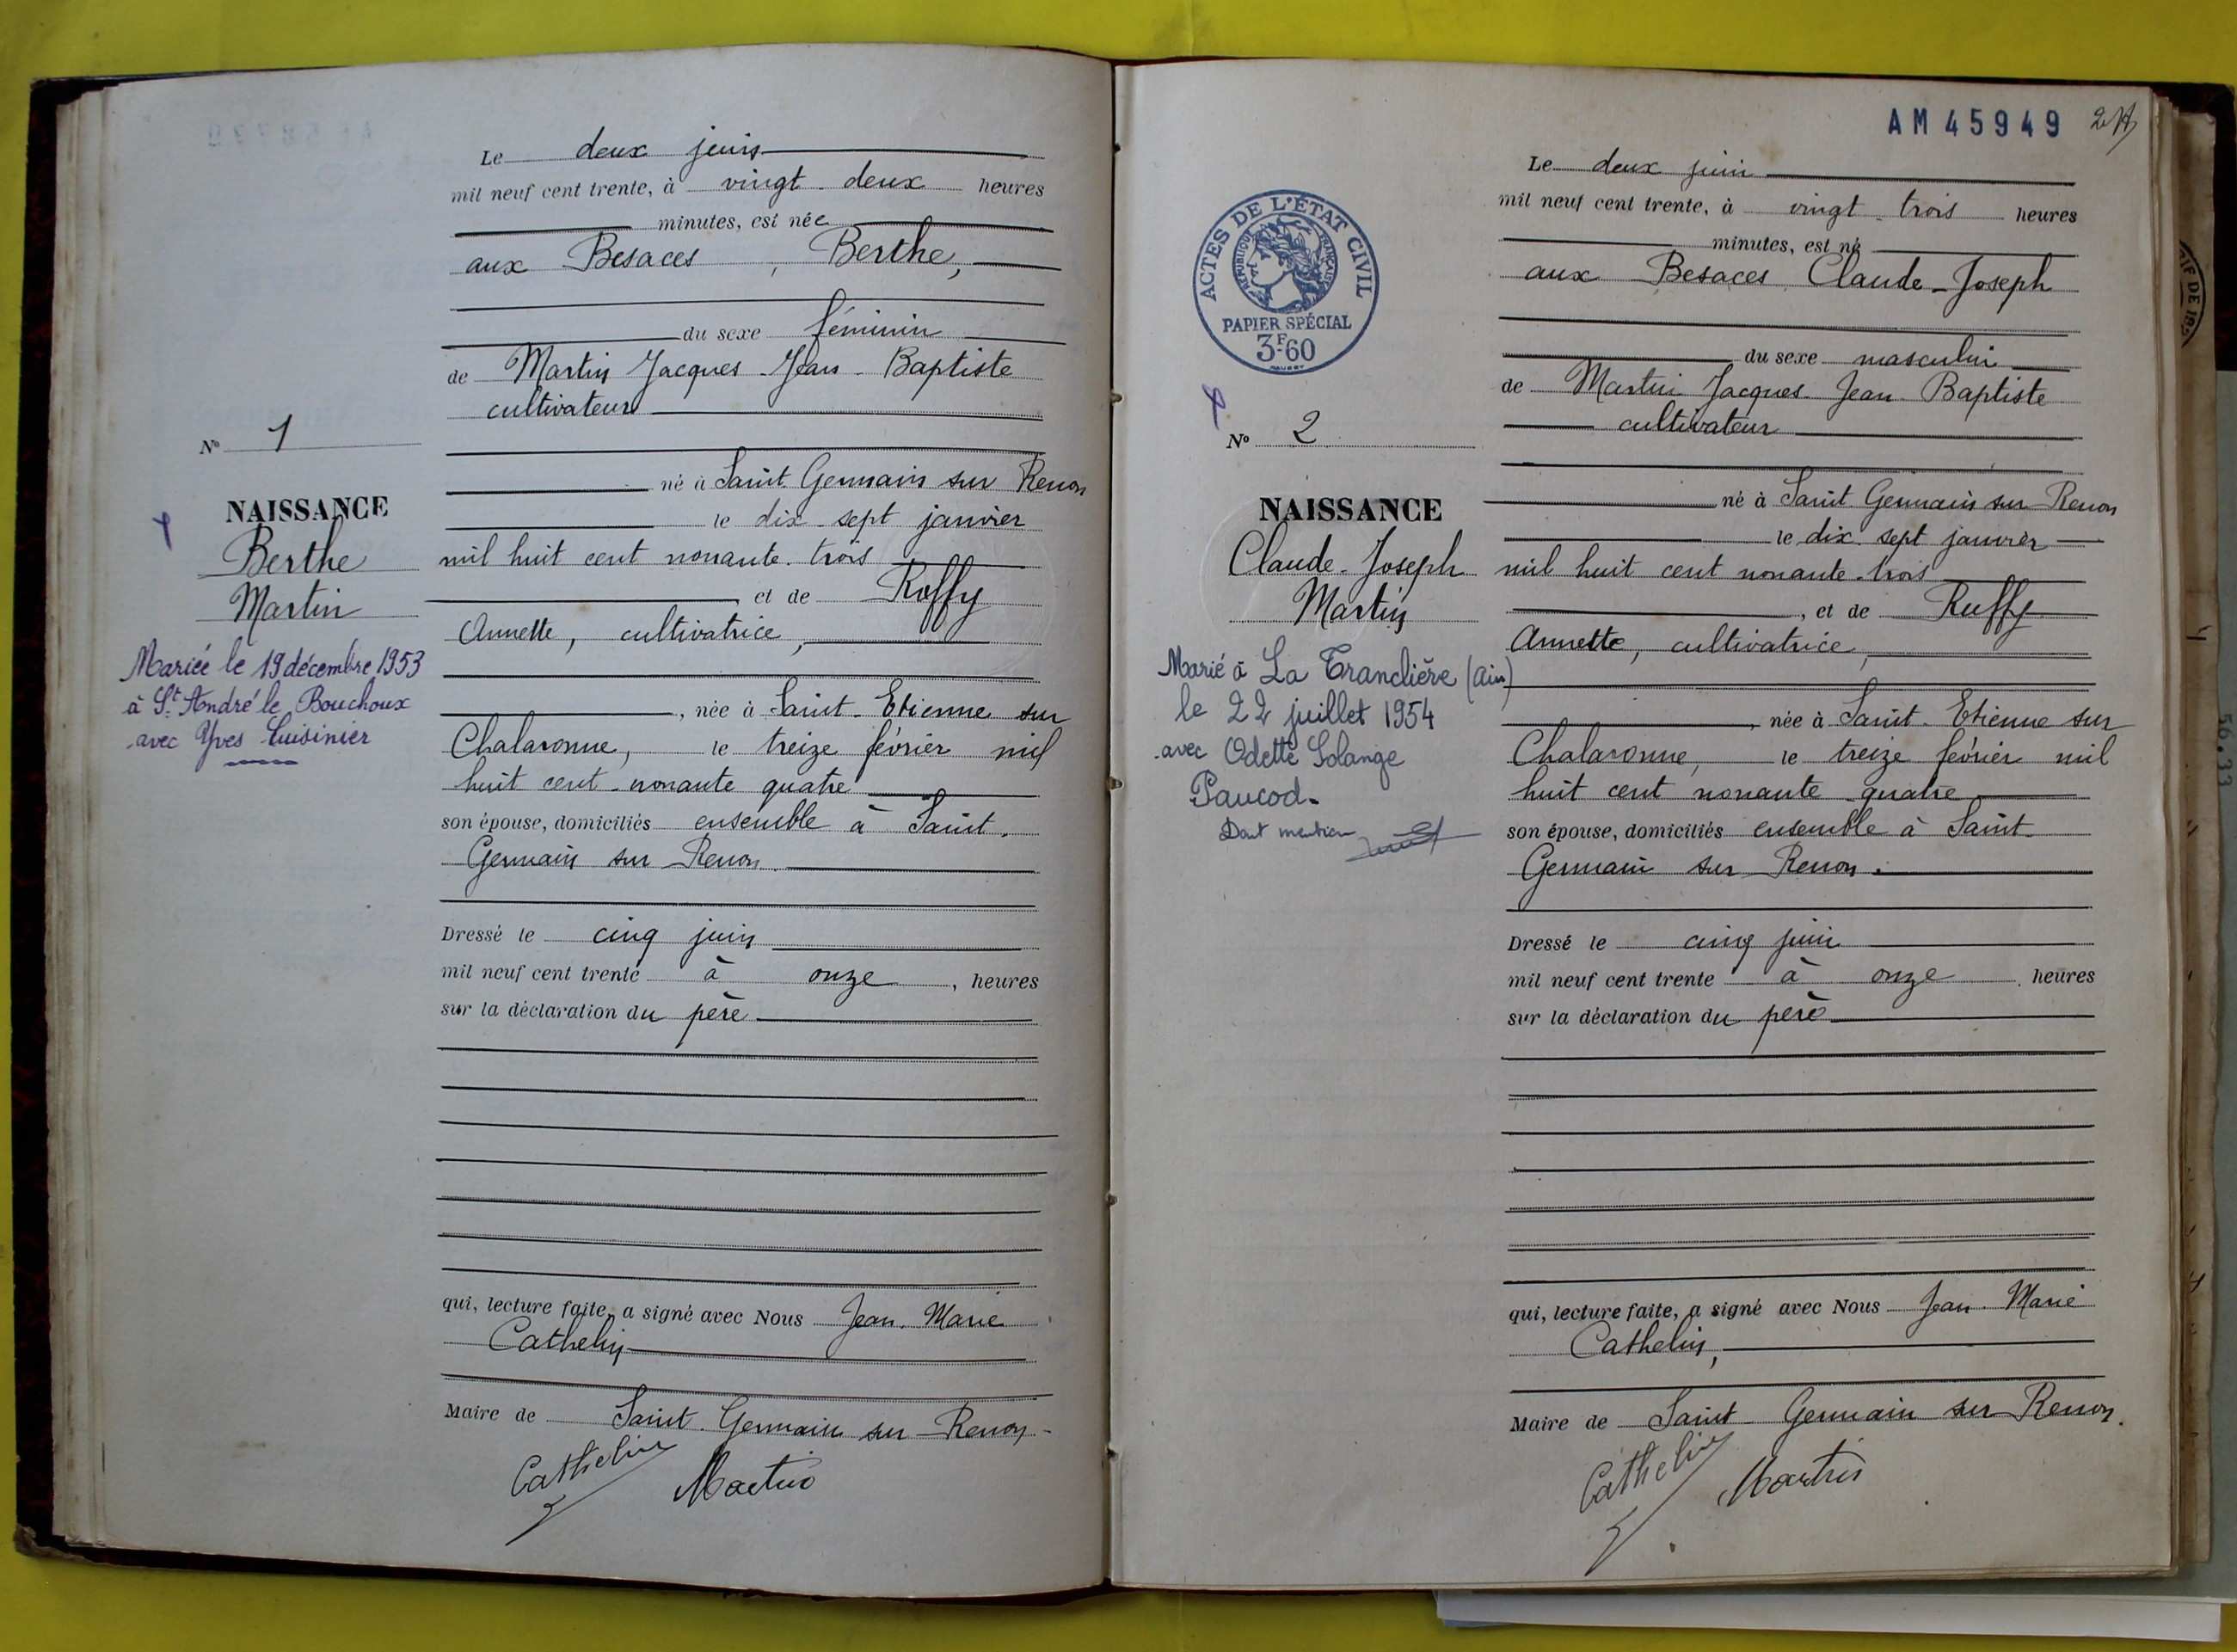 Le deux juin
mil neuf cent trente, à vingt-deux heures
minutes, est née
aux Besaces, Berthe,
du sexe féminin
de Martin Jacques-Jean-Baptiste
cultivateur
né à Saint Germain sur Renon
le dix-sept janvier
mil huit cent nonante-trois
et de Roffy
Annette, cultivatrice,
, née à Saint-Etienne sur
Chalaronne, le treize février mil
huit cent-nonante quatre
son épouse, domiciliés ensemble à Saint-
Germain sur Renon.
Dressé le cinq juin
mil neuf cent trente à onze, heures
sur la déclaration du père
qui, lecture faite, a signé avec Nous Jean-Marie
Cathelin
Maire de Saint-Germain sur Renon-
Cathelin Martin
N° 1
NAISSANCE
Berthe
Martin
Mariée le 19 décembre 1953
à St André le Bouchoux
avec Yves Cuisinier
AM45949
ACTES DE L'ÉTAT CIVIL
RÉPUBLIQUE FRANÇAISE
PAPIER SPÉCIAL
3F60
N° 2
NAISSANCE
Claude-Joseph
Martin
Marié à La Tranclière (Ain)
le 22 juillet 1954
avec Odette Solange
Paucod-
Dont mention
Le deux juin
mil neuf cent trente, à vingt-trois heures
minutes, est né
aux Besaces Claude-Joseph
du sexe masculin
de Martin Jacques-Jean-Baptiste
cultivateur
né à Saint Germain sur Renon
le dix-sept janvier
mil huit cent nonante-trois
, et de Ruffy
Annette, cultivatrice,
, née à Saint-Etienne sur
Chalaronne, le treize février mil
huit cent nonante-quatre
son épouse, domiciliés ensemble à Saint-
Germain sur Renon.
Dressé le cinq juin
mil neuf cent trente à onze heures
sur la déclaration du père
qui, lecture faite, a signé avec Nous Jean-Marie
Cathelin,
Maire de Saint-Germain sur Renon.
Cathelin Martin